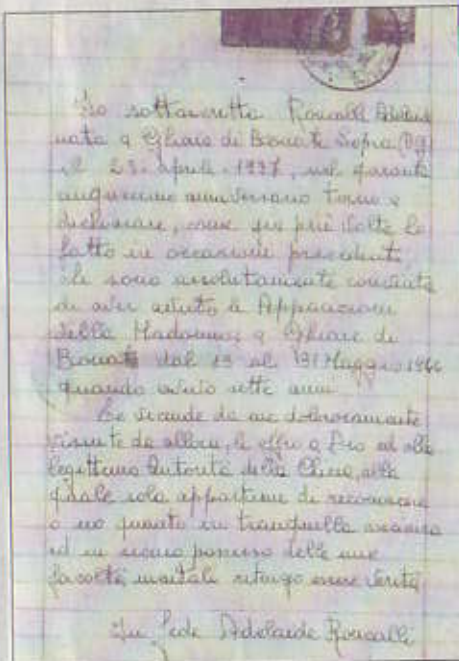 Io sottoscritta Roncalli Adelaide
nata a Ghiaie di Bonate Sopra (Bg)
il 23 aprile 1937, nel quaranta
cinquesimo anniversario torno a
dichiarare, come già più volte ho
fatto in occasioni precedenti
che sono assolutamente convinta
di aver avuto le Apparizioni
della Madonna a Ghiaie di
Bonate dal 13 al 31 Maggio 1944
quando avevo sette anni.
Le vicende da me dolorosamente
vissute da allora, le offro a Dio ed alla
legittima Autorità della Chiesa, alla
quale sola appartiene di riconoscere
o no quanto in tranquilla coscienza
ed in sicuro possesso delle mie
facoltà mentali ritengo essere verità.
In fede Adelaide Roncalli